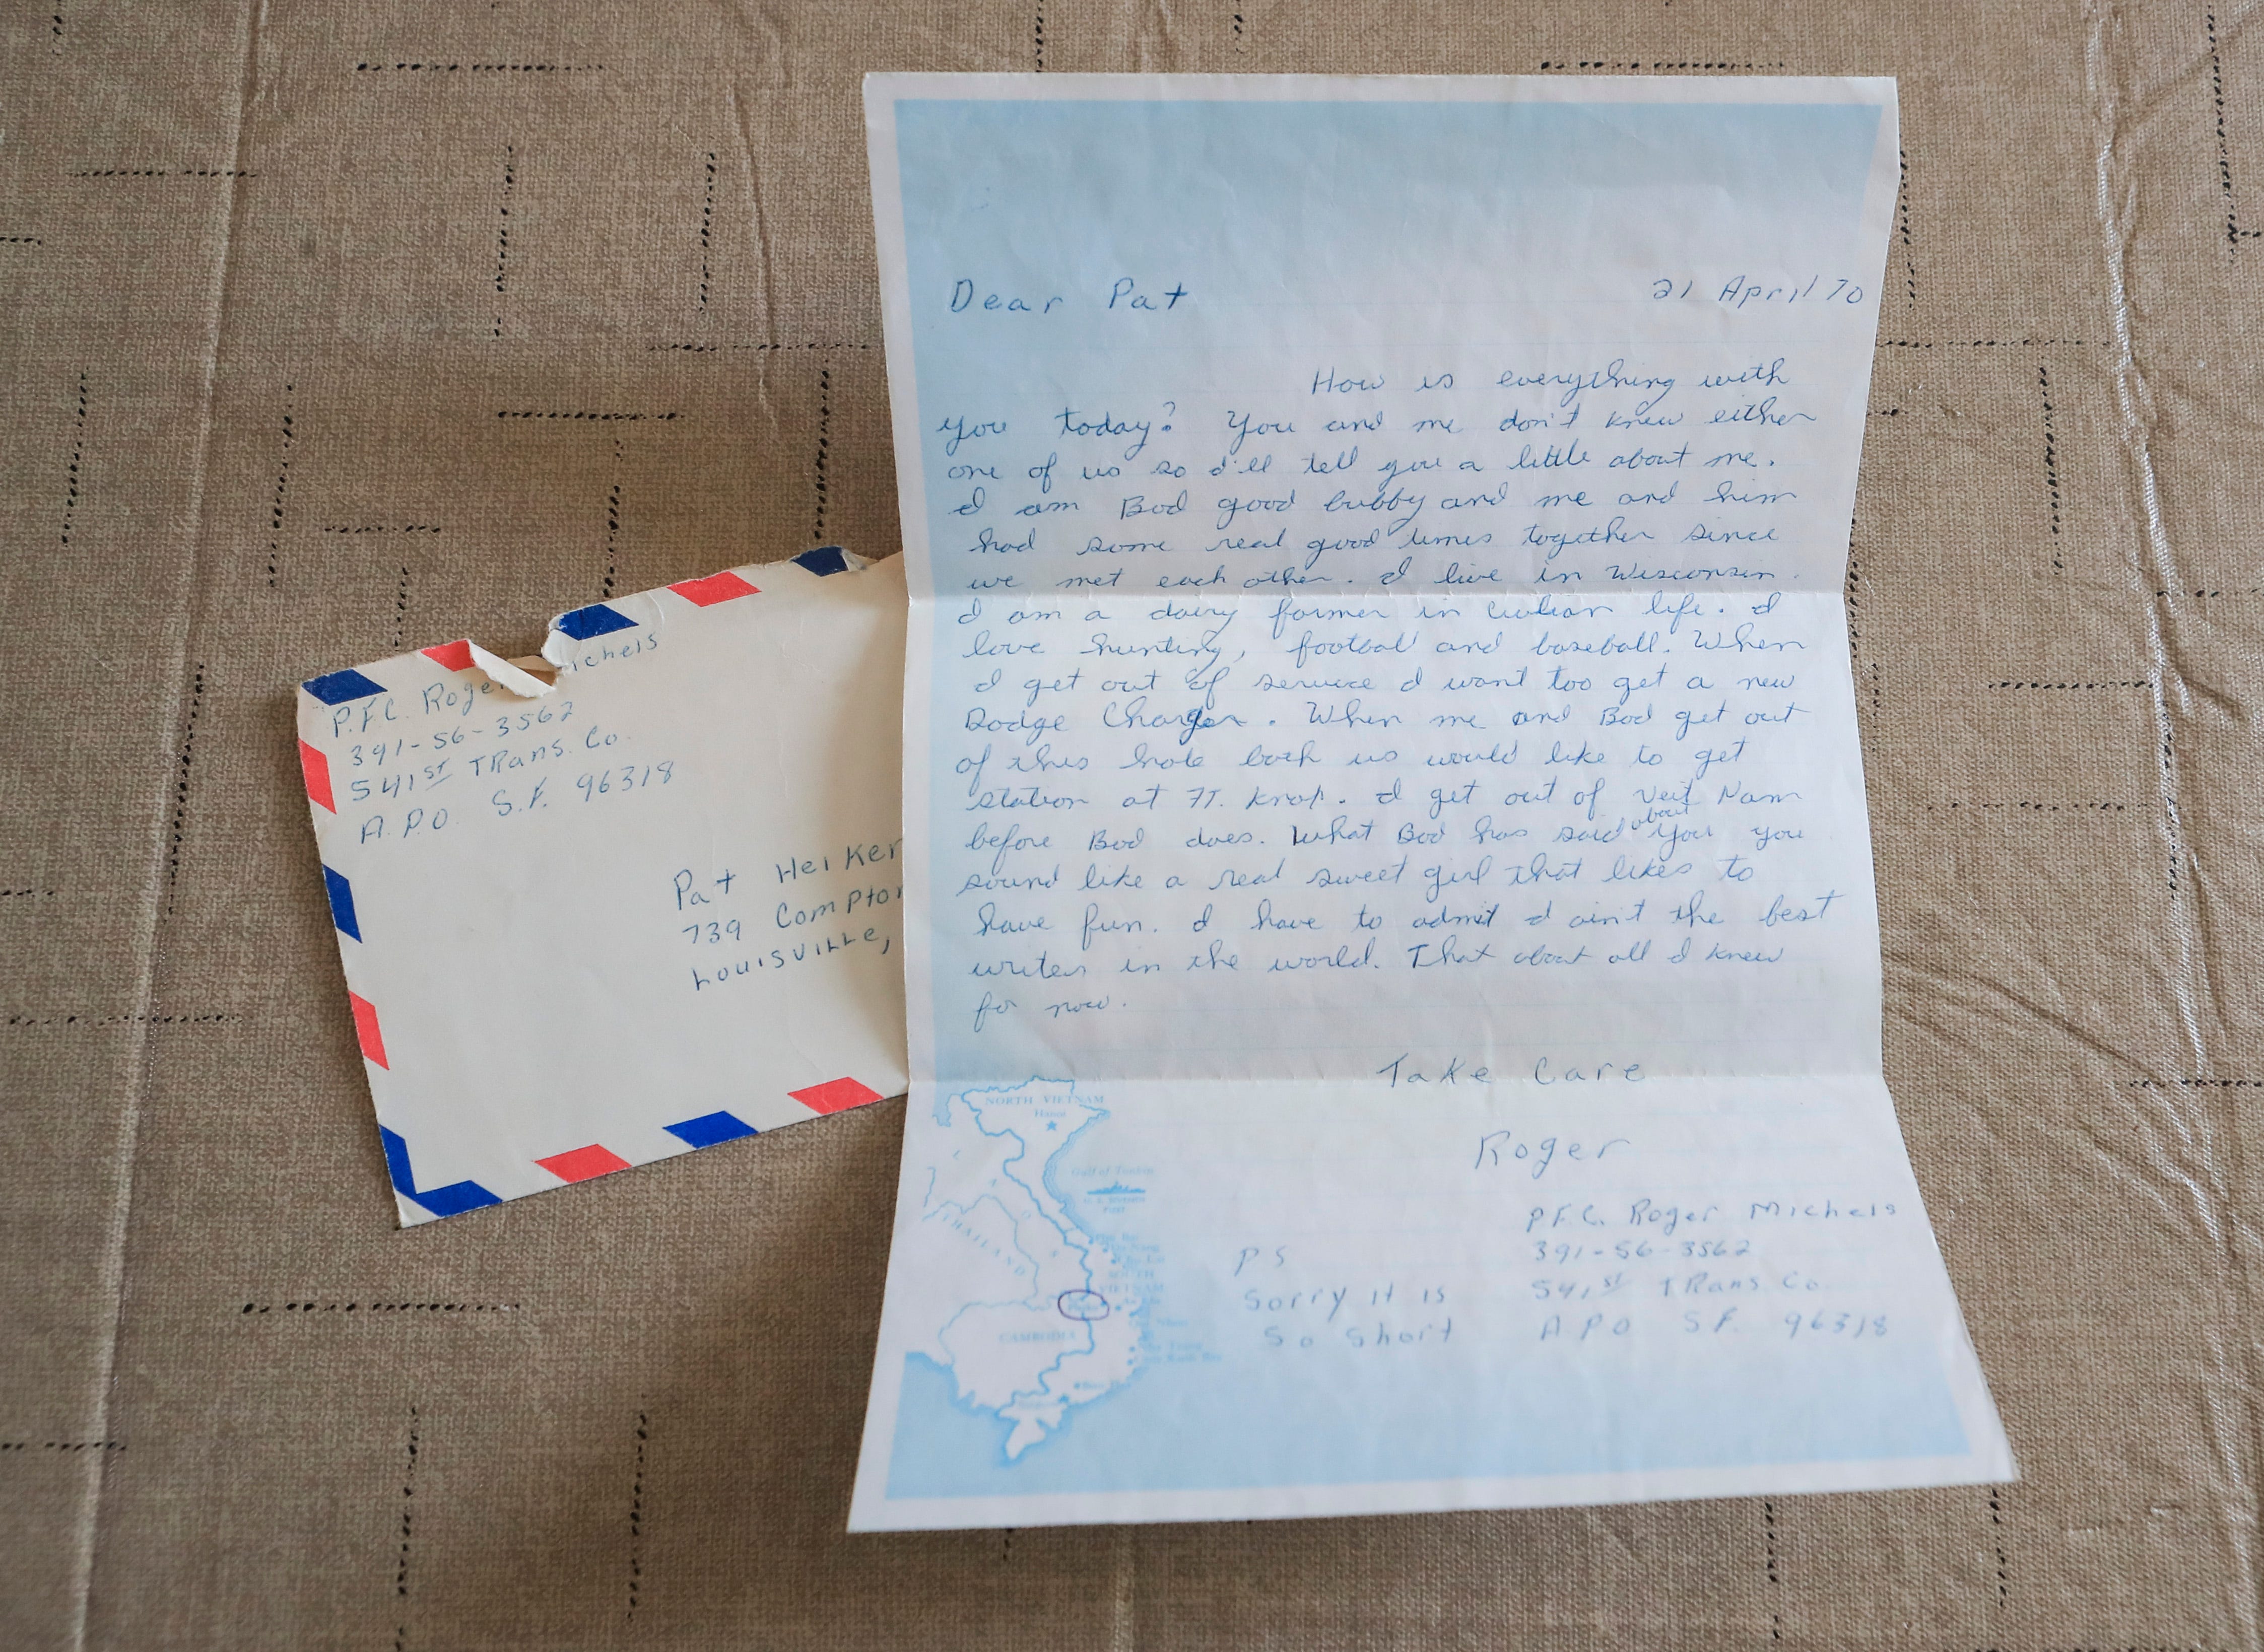 P.F.C. Roger ichels
391-56-3562
541ST TRans. Co.
A.P.O. S.F. 96318
Pat Heiker
739 Compton
Louisville,
Dear Pat
21 April 70
How is everything with
you today? You and me don't knew either
one of us so I'll tell you a little about me.
I am Bod good bubby and me and him
had some real good times together since
we met each other. I live in Wisconsin.
I am a dairy farmer in civilian life. I
love hunting, football and baseball. When
I get out of service I want too get a new
Dodge Charger. When me and Bod get out
of this hole both us would like to get
station at FT. Knox. I get out of Veit Nam
before Bod does. What Bod has said about you you
sound like a real sweet girl that likes to
have fun. I have to admit I ain't the best
writer in the world. That about all I knew
for now.
Take Care
Roger
P.F.C. Roger Michels
391-56-3562
541ST TRans Co.
A.P.O S.F. 96318
PS
Sorry it is
So Short
NORTH VIETNAM
Hanoi
Gulf of Tonkin
THAILAND
SOUTH
VIETNAM
CAMBODIA